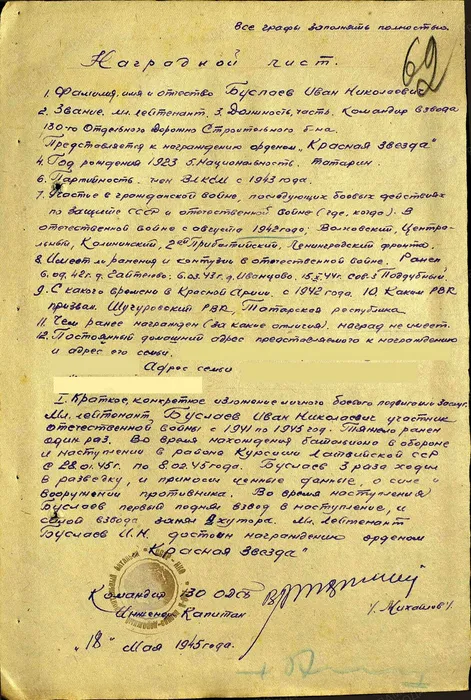 Все графы заполнять полностью.
62
Наградной лист.
1. Фамилия, имя и отчество Буслаев Иван Николаевич
2. Звание. мл. лейтенант. 3. Должность, часть. Командир взвода
130-го Отдельного Дорожно Строительного б-на.
Представляется к награждению орденом „Красная Звезда"
4. Год рождения 1923 5. Национальность. татарин.
6. Партийность. член ВЛКСМ с 1943 года.
7. Участие в гражданской войне, последующих боевых действиях
по защите СССР и отечественной войне (где, когда). В
отечественной войне с августа 1942 году, Волховский, Централь-
ный, Калининский, 2ой Прибалтийский, Ленинградский фронта.
8. Имеет ли ранения и контузии в отечественной войне. Ранен
6.09.42г. д. 6.03.43г. д. Иванцово, 15.3.44г. Поддубный
9. С какого времени в Красной Армии. с 1942 года. 10. Каким РВК
призван. Шучуровский РВК, Татарской республика
11. Чем ранее награжден (за какие отличия). наград не имеет.
12. Постоянный домашний адрес представляемого к награждению
и адрес его семьи.
Адрес семьи
I. Краткое, конкретное изложение личного боевого подвига или заслуг.
Мл. лейтенант, Буслаев Иван Николаевич участник
отечественной войны с 1941 по 1945 год. Тяжело ранен
один раз. Во время нахождения батальона в обороне
и наступлении в района Курсиши Латвийской ССР
с 28.01.45г. по 8.02.45 года. Буслаев 3 раза ходил
в разведку, и приносил ценные данные, о силе и
вооружении противника. Во время наступления
Буслаев первый поднял взвод в наступление, и
силой взвода занял 2 хутора. Мл. лейтенант
Буслаев И.Н. достоин награждению орденом
„Красная Звезда"
Командир 130 ОДСБ
Инженер Капитан
/. Михайлов /.
"18" Мая 1945 года.